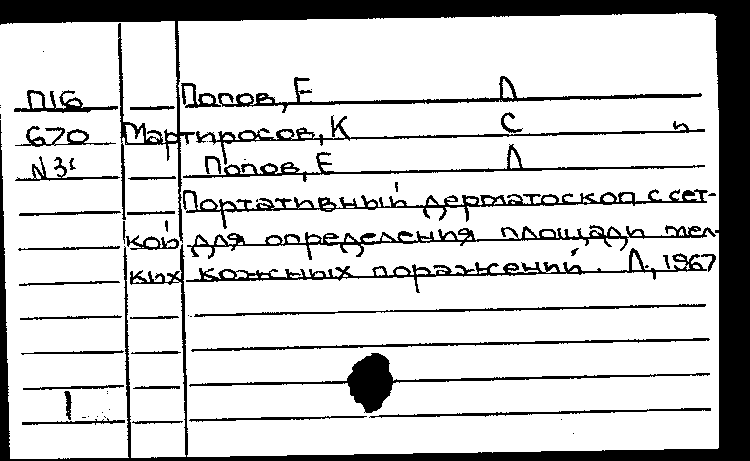 П16 Попов, Е Л
670 Мартиросов, К С и
N 31 Попов, Е Л
Портативный дерматоскоп с сет-
кой для определения площади мел-
ких кожных поражений. Л., 1967
1